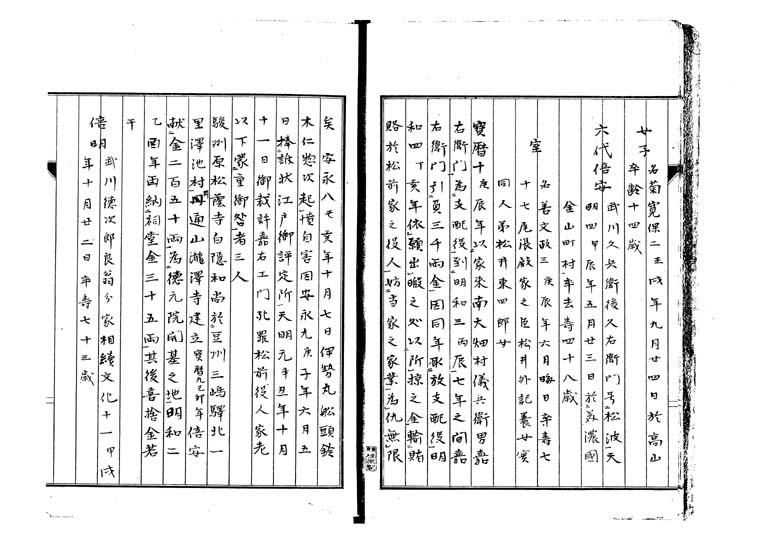 女子 名菊寛保二壬戌年九月廿四日於高山
卒齢十四歳
六代倍安 武川久兵衛後久右衛門号松波天
明四甲辰年五月廿三日於美濃國
金山町村卒去寿四十八歳
室 名善文政三庚辰年六月晦日卒壽七
十七尾張殿家之臣松井外記養女実
同人弟松井東四郎女
寳暦十庚辰年以家来南大畑村儀兵衛男嘉
右衛門為支配役到明和三丙辰七年之間嘉
右衛門引負三千両金因同年取放支配役明
和四丁亥年依願出暇之处以所掠之金賄賭
賂於松前家之役人妨當家之家業為仇無限
矣 安永八己亥十月七日伊勢丸船頭鈴
木仁惣次起憤自害因安永九庚子年六月五
日捧訴状江戸御評定所天明元辛丑年十月
十一日御裁許嘉右エ門死罪松前役人家老
以下蒙重御咎者三人
駿州原松蔭寺白隠和尚於豆州三嶋驛北一
里澤池村円通山瀧澤寺建立寳暦九己卯年倍安
献金二百五十両為德元院開基之地明和二
乙酉年再納祠堂金三十五両其後喜捨金若
干
倍明 武川德次郎良翁分家相續文化十一甲戌
年十月廿二日卒寿七十三歳